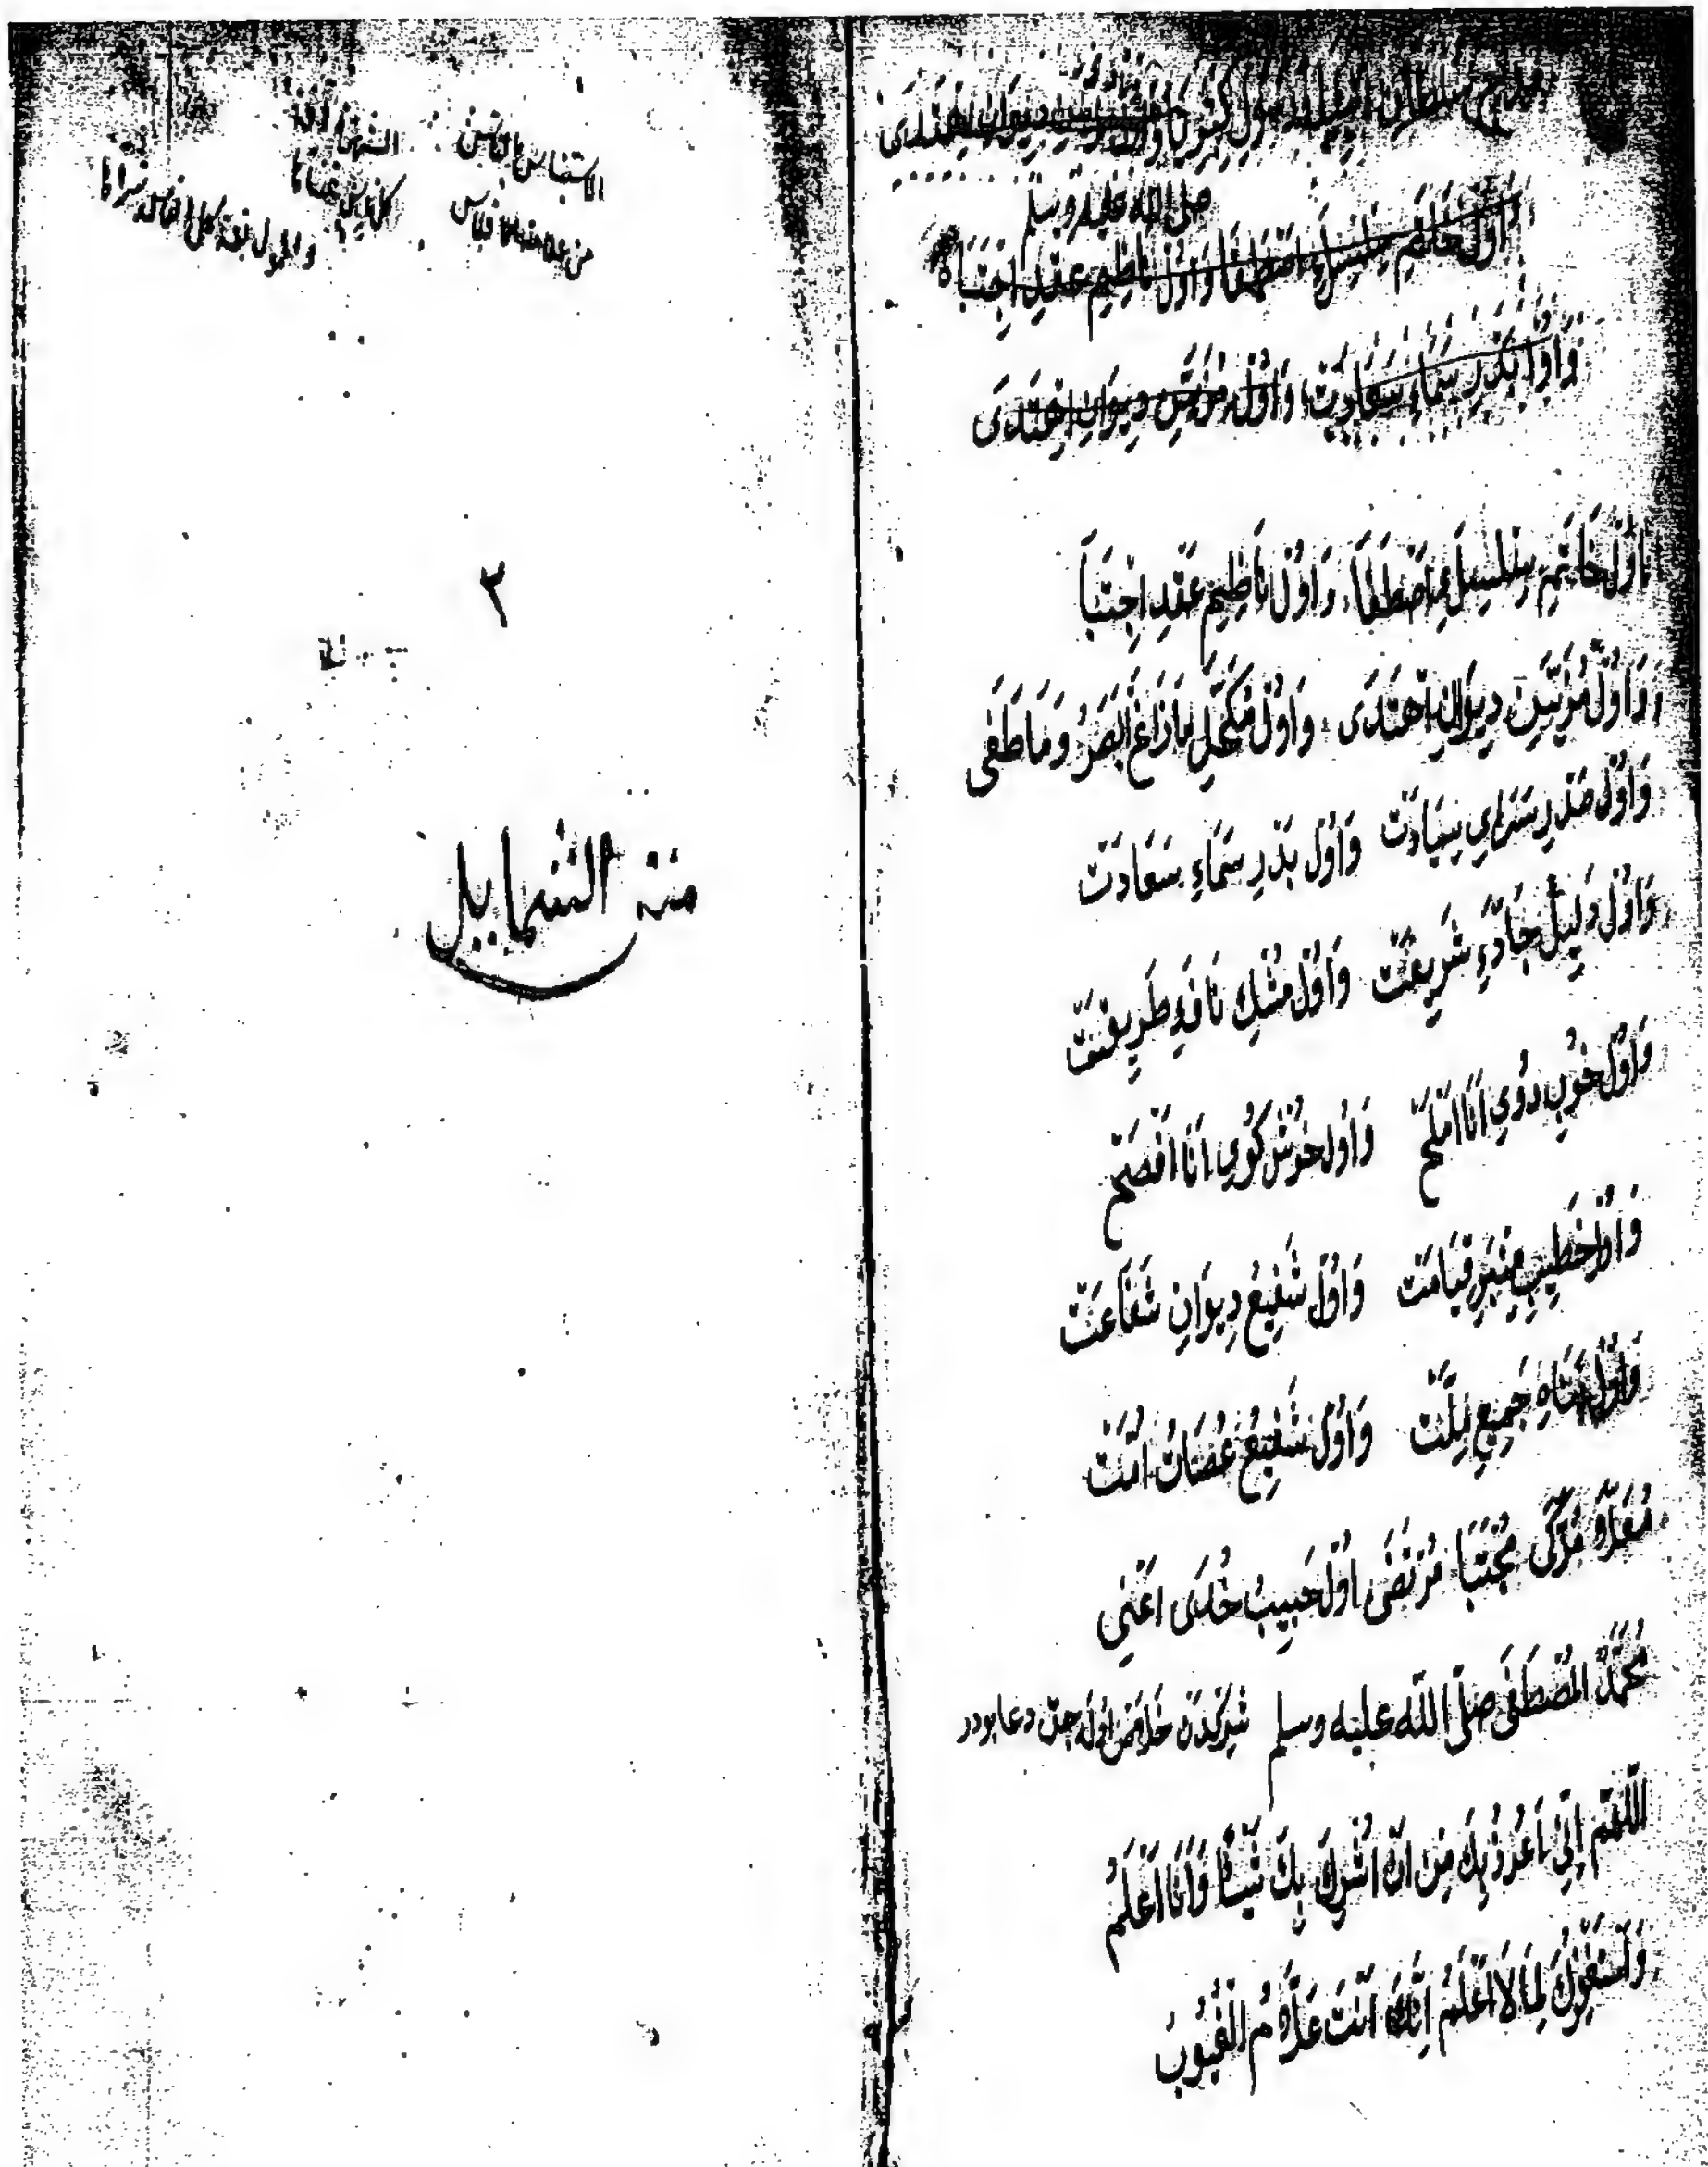 صلى الله عليه وسلم
اَوُلْ خَاتَمِ سِلْسِلَهِٔ اصْطَفَا وَاوُلْ نَاظِمِ عِقْدِ اجْتِبَاهُ
وَاوُلْ بَدْرِ سَمَاءِ سَعَادَتْ وَاوُلْ مُزَيِّنِ دِيوَانِ اهْتَدَى
اوُلْ خَاتَمِ سِلْسِلَهِٔ اصْطَفَا وَاوُلْ نَاظِمِ عِقْدِ اجْتِبَا
وَاوُلْ مُزَيِّنِ دِيوَانِ اهْتَدَى وَاوُلْ مُكَحَّلِ مَا زَاغَ الْبَصَرُ وَمَا طَغَى
وَاوُلْ صَدْرِ سَرَايِ سِيَادَتْ وَاوُلْ بَدْرِ سَمَاءِ سَعَادَتْ
وَاوُلْ دَلِيلِ جَادَّهِٔ شَرِيعَتْ وَاوُلْ مُشْكِ نَافَهِٔ طَرِيقَتْ
وَاوُلْ خُوبِ رُويِ اَنَا اَمْلَحْ وَاوُلْ خُوشْ كُويِ اَنَا اَفْصَحْ
وَاوُلْ خَطِيبِ مِنْبَرِ قِيَامَتْ وَاوُلْ شَفِيعِ دِيوَانِ شَفَاعَتْ
وَاوُلْ پَنَاهِ جَمِيعِ مِلَّتْ وَاوُلْ شَفِيعِ عُصَاتِ اُمَّتْ
مُعَلَّا مُزَكَّى مُجْتَبَا مُرْتَضَى اوُلْ حَبِيبِ خُدَى اَعْنِى
مُحَمَّدْ الْمُصْطَفَى صَلَّى اللّٰه عليه وسلم شركدن خلاص اوله جق دعا بودر
اَللّٰهُمَّ اِنِّي اَعُوذُ بِكَ مِنْ اَنْ اُشْرِكَ بِكَ شَيْئًا وَاَنَا اَعْلَمُ
وَاَسْتَغْفِرُكَ لِمَا لَا اَعْلَمُ اِنَّكَ اَنْتَ عَلَّامُ الْغُيُوبِ
٣
متن الشمايل